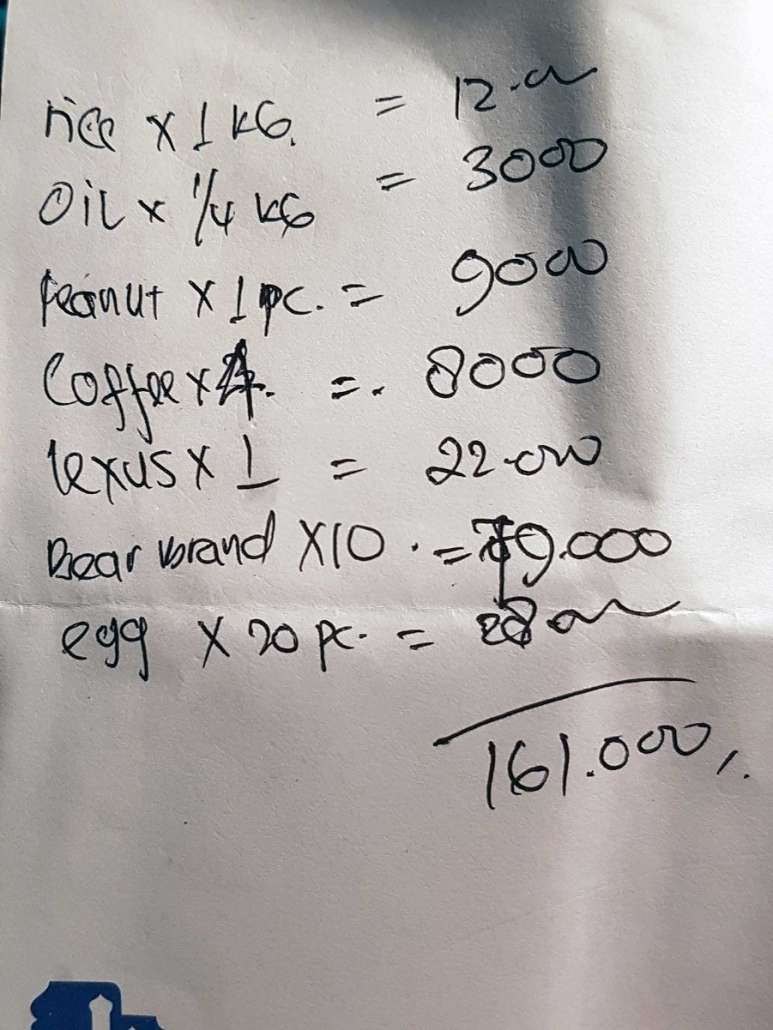 rice x 1 KG. = 12.000
Oil x 1/4 KG = 3000
Peanut x 1 pc. = 9000
Coffee x 4. =. 8000
lexus x 1 = 22.000
Bear brand x10 . = 79.000
egg x 20 pc. = 28000
161.000,.